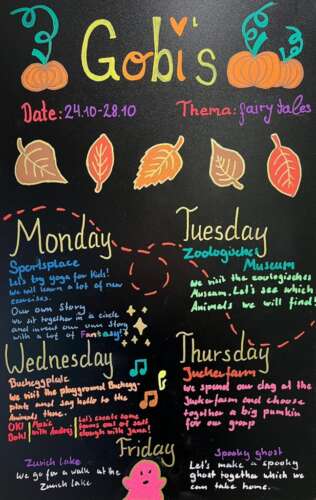 Gobi's
Date: 24.10-28.10
Thema: fairy tales
Monday
Sportsplace
Let's try yoga for Kids!
We will learn a lot of new
exercises.
Our own Story
We sit together in a circle
and invent our own story
with a lot of Fantasy!
Tuesday
Zoologisches
Museum
We visit the zoologisches
Museum. Let's see which
Animals we will find!
Wednesday
We visit the playground Buchegg-
platz and say hello to the
Animals there.
Music
with Andrej
Let's create some
out of salt
dough with Jana!
Thursday
Juckerfarm
We spend our day at the
Juckerfarm and choose
together a big pumkin
for our group
Friday
Zurich Lake
We go for a walk at the
Zurich Lake
Spooky ghost
Let's make a spooky
ghost together which we
can take home.